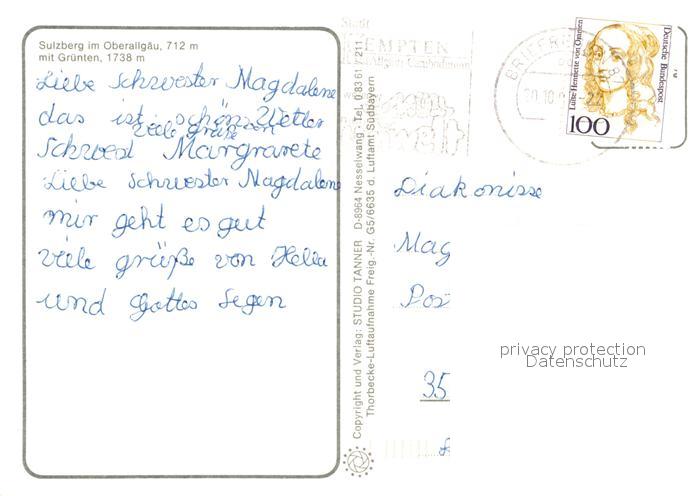 Sulzberg im Oberallgäu, 712 m
mit Grünten, 1738 m
Liebe Schwester Magdalene
das ist schöns Wetter
viele grüße von
Schwest Margravete
Liebe Schwester Magdalene
mir geht es gut
viele grüße von Hella
und Gottes Segen
Copyright und Verlag: STUDIO TANNER D-8964 Nesselwang · Tel. 0 83 61 / 211
Thorbecke-Luftaufnahme Freig.-Nr. G5/6635 d. Luftamt Südbayern
Stadt
KEMPTEN
BRIEFZ
Lütte-Henriette von Ommen
Deutsche Bundespost
100
Diakonisse
Mag
Pos
35
privacy protection
Datenschutz